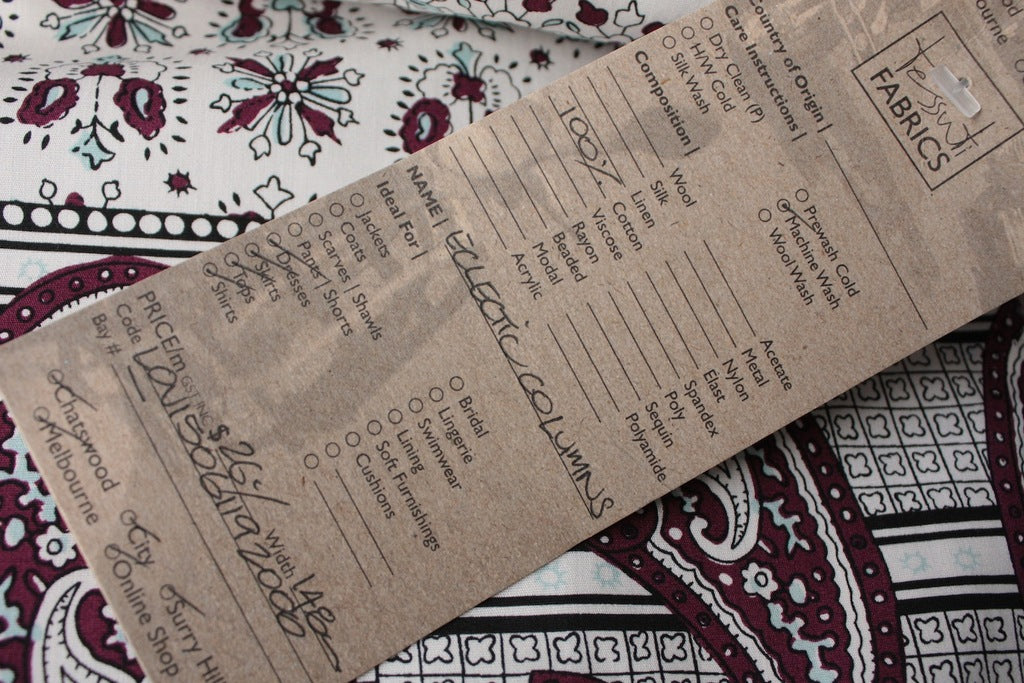 Tessuti
FABRICS
Country of Origin |
Care Instructions |
Dry Clean (P)
H/W Cold
Silk Wash
Prewash Cold
Machine Wash
Wool Wash
Composition |
Wool
Silk
Linen
100% Cotton
Viscose
Rayon
Beaded
Modal
Acrylic
Acetate
Metal
Nylon
Elast
Spandex
Poly
Sequin
Polyamide
NAME | ECLECTIC COLUMNS
Ideal For |
Jackets
Coats
Scarves | Shawls
Pants | Shorts
Dresses
Skirts
Tops
Shirts
Bridal
Lingerie
Swimwear
Lining
Soft Furnishings
Cushions
PRICE/m GST INC $26/ Width 148
Code
Bay #
Chatswood
City
Surry Hil
Melbourne
Online Shop
bourne